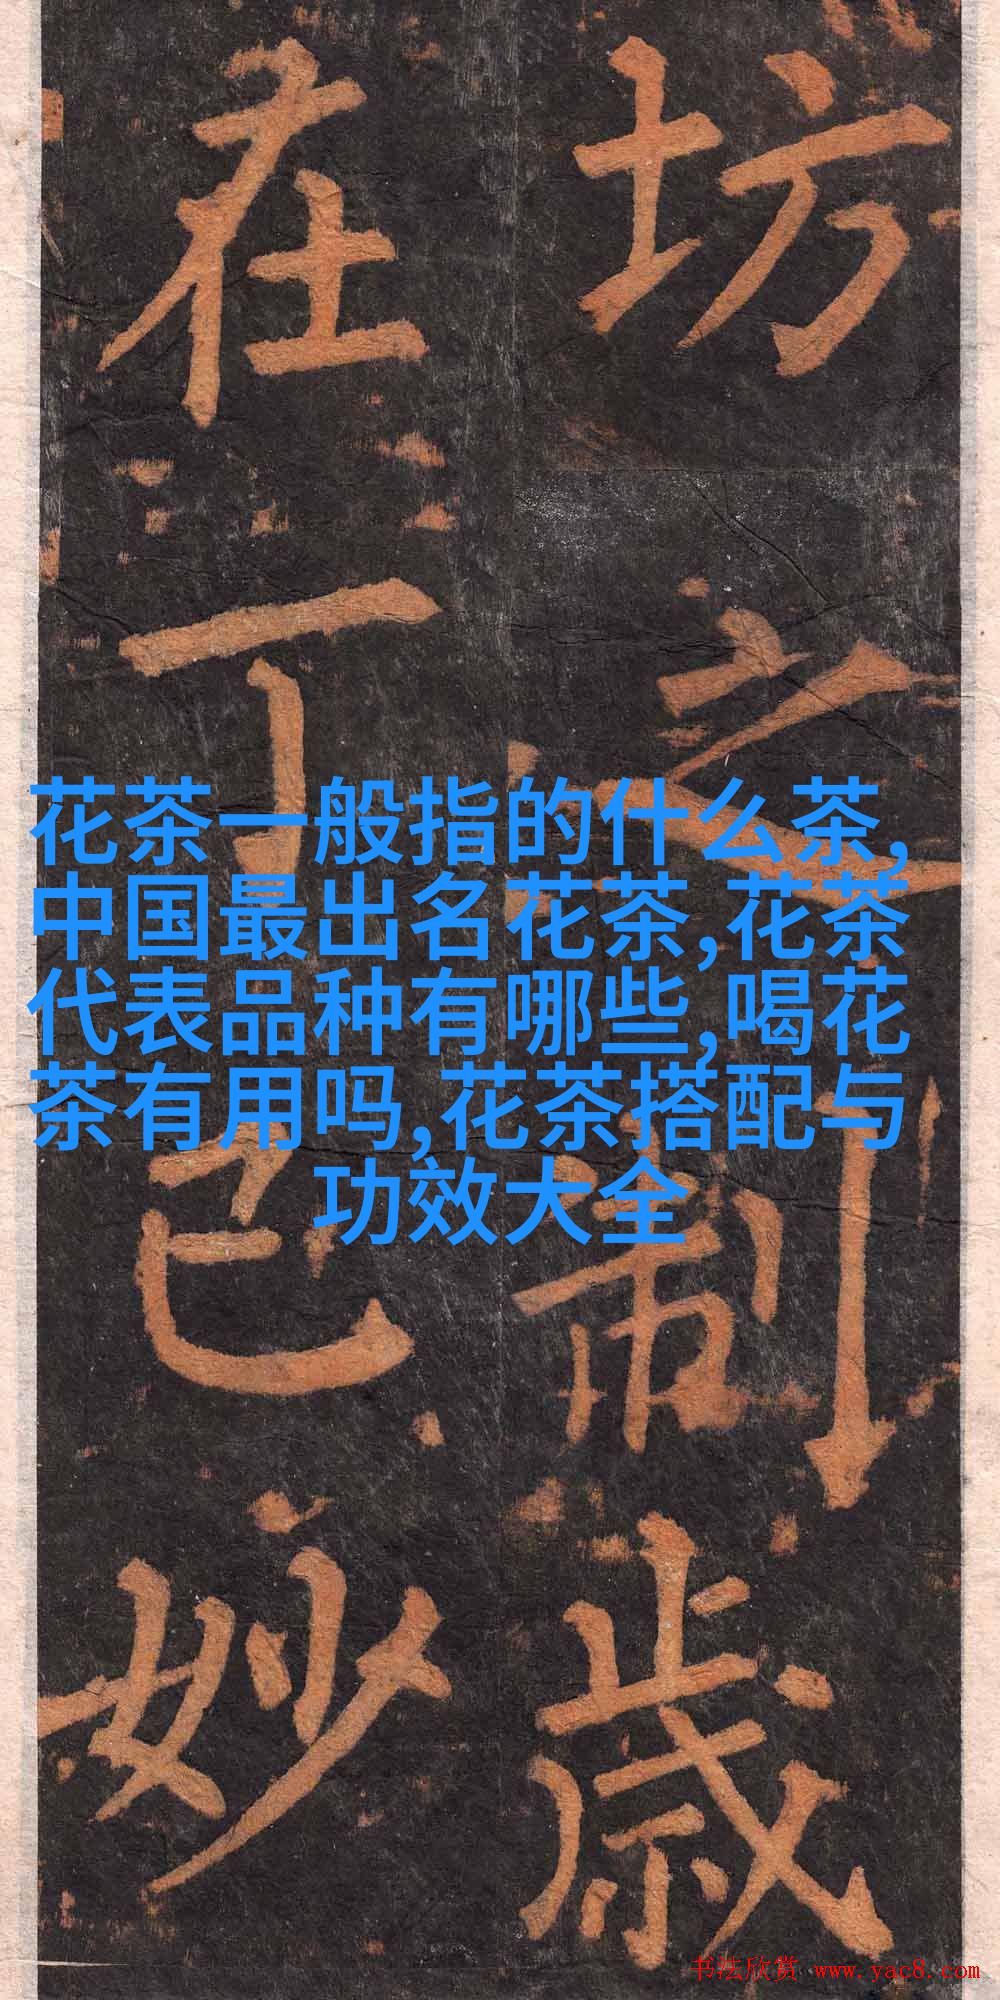 坊之制
歲
在丁已
妙
花茶一般指的什么茶,
中国最出名花茶,花茶
代表品种有哪些,喝花
茶有用吗,花茶搭配与
功效大全
书法欣赏 www.yac8.com